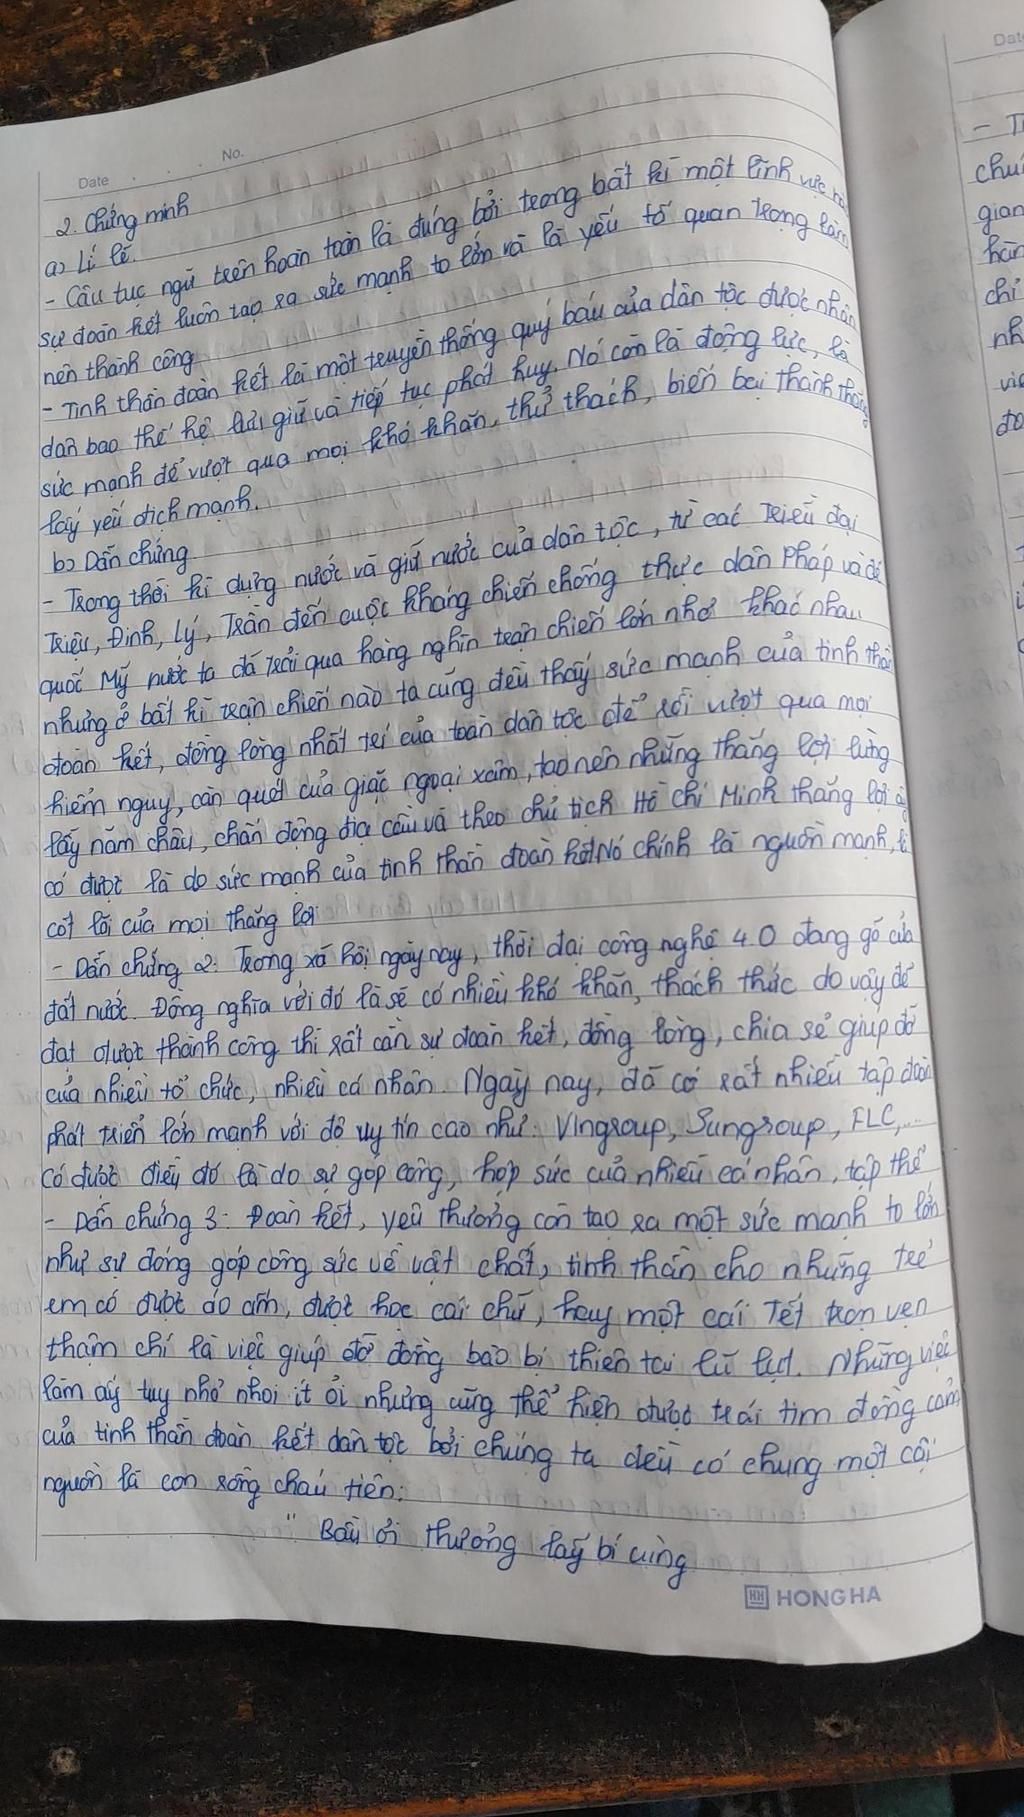 Date No.
2. Chứng minh
a) Lí lẽ.
- Câu tục ngữ trên hoàn toàn là đúng bởi trong bất kì một lĩnh vực
sự đoàn kết luôn tạo ra sức mạnh to lớn và là yếu tố quan trọng làm
nên thành công
- Tinh thần đoàn kết là một truyền thống quý báu của dân tộc được nhân
dân bao thế hệ lưu giữ và tiếp tục phát huy. Nó còn là động lực, là
sức mạnh để vượt qua mọi khó khăn, thử thách, biến bại thành thắng
lấy yếu địch mạnh.
b) Dẫn chứng
- Trong thời kì dựng nước và giữ nước của dân tộc, từ các triều đại
Triệu, Đinh, Lý, Trần đến cuộc kháng chiến chống thực dân Pháp và đế
quốc Mỹ nước ta đã trải qua hàng nghìn trận chiến lớn nhỏ khác nhau
nhưng ở bất kì trận chiến nào ta cũng đều thấy sức mạnh của tinh thần
đoàn kết, đồng lòng nhất trí của toàn dân tộc để rồi vượt qua mọi
hiểm nguy, càn quét của giặc ngoại xâm, tạo nên những thắng lợi lừng
lẫy năm châu, chấn động địa cầu và theo chủ tịch Hồ Chí Minh thắng lợi ấy
có được là do sức mạnh của tinh thần đoàn kết Nó chính là nguồn mạnh,
cốt lõi của mọi thắng lợi
- Dẫn chứng 2: Trong xã hội ngày nay, thời đại công nghệ 4.0 đang gõ cửa
đất nước. Đồng nghĩa với đó là sẽ có nhiều khó khăn, thách thức do vậy để
đạt được thành công thì rất cần sự đoàn kết, đồng lòng, chia sẻ giúp đỡ
của nhiều tổ chức, nhiều cá nhân. Ngày nay, đã có rất nhiều tập đoàn
phát triển lớn mạnh với độ uy tín cao như: Vingroup, Sungroup, FLC,...
Có được điều đó là do sự góp công, hợp sức của nhiều cá nhân, tập thể
- Dẫn chứng 3: Đoàn kết, yêu thương còn tạo ra một sức mạnh to lớn
như sự đóng góp công sức về vật chất, tinh thần cho những trẻ
em có được áo ấm, được học cái chữ, hay một cái Tết trọn vẹn
thậm chí là việc giúp đỡ đồng bào bị thiên tai lũ lụt. Những việc
làm ấy tuy nhỏ nhoi ít ỏi nhưng cũng thể hiện được trái tim đồng cảm,
của tinh thần đoàn kết dân tộc bởi chúng ta đều có chung một cội
nguồn là con rồng cháu tiên:
" Bầu ơi thương lấy bí cùng
HH HONG HA
Dat
- T
chú
gian
chỉ
nh
đo